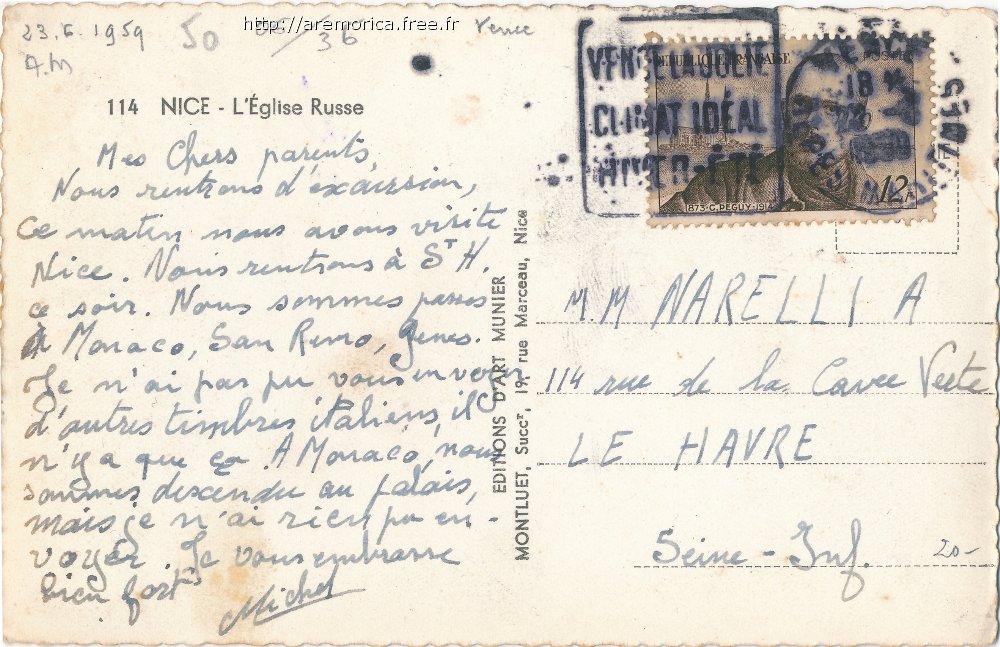 http://aremorica.free.fr
23.6.1959
A.M
50
06/36
Vence
114 NICE - L'Église Russe
Mes Chers parents,
Nous rentrons d'excursion,
Ce matin nous avons visité
Nice. Nous rentrons à St H.
ce soir. Nous sommes passés
à Monaco, San Remo, Genes.
Je n'ai pas pu vous envoyer
d'autres timbres italiens, il
n'y a que ça. A Monaco, nous
sommes descendu au palais,
mais je n'ai rien pu en-
voyer. Je vous embrasse
bien fort
Michel
EDITIONS D'ART MUNIER
MONTLUET, Succr, 19, rue Marceau, Nice
VENCE LA JOLIE
CLIMAT IDÉAL
HIVER-ÉTÉ
18 H
RÉPUBLIQUE FRANÇAISE
POSTES
12F
1873-C. PEGUY-1914
M.M NARELLI A
114 rue de la Cavee Verte
LE HAVRE
Seine-Inf.
20-